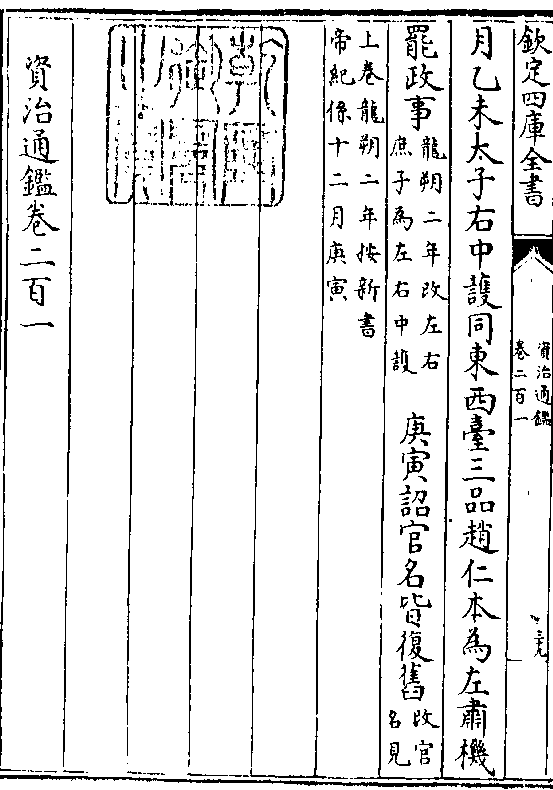 欽定四庫全書
資治通鑑
卷二百一
月乙未太子右中護同東西臺三品趙仁本為左肅機
罷政事
龍朔二年改左右
庶子為左右中護
庚寅詔官名皆復舊
改官
名見
上卷龍朔二年按新書
帝紀係十二月庚寅
資治通鑑卷二百一